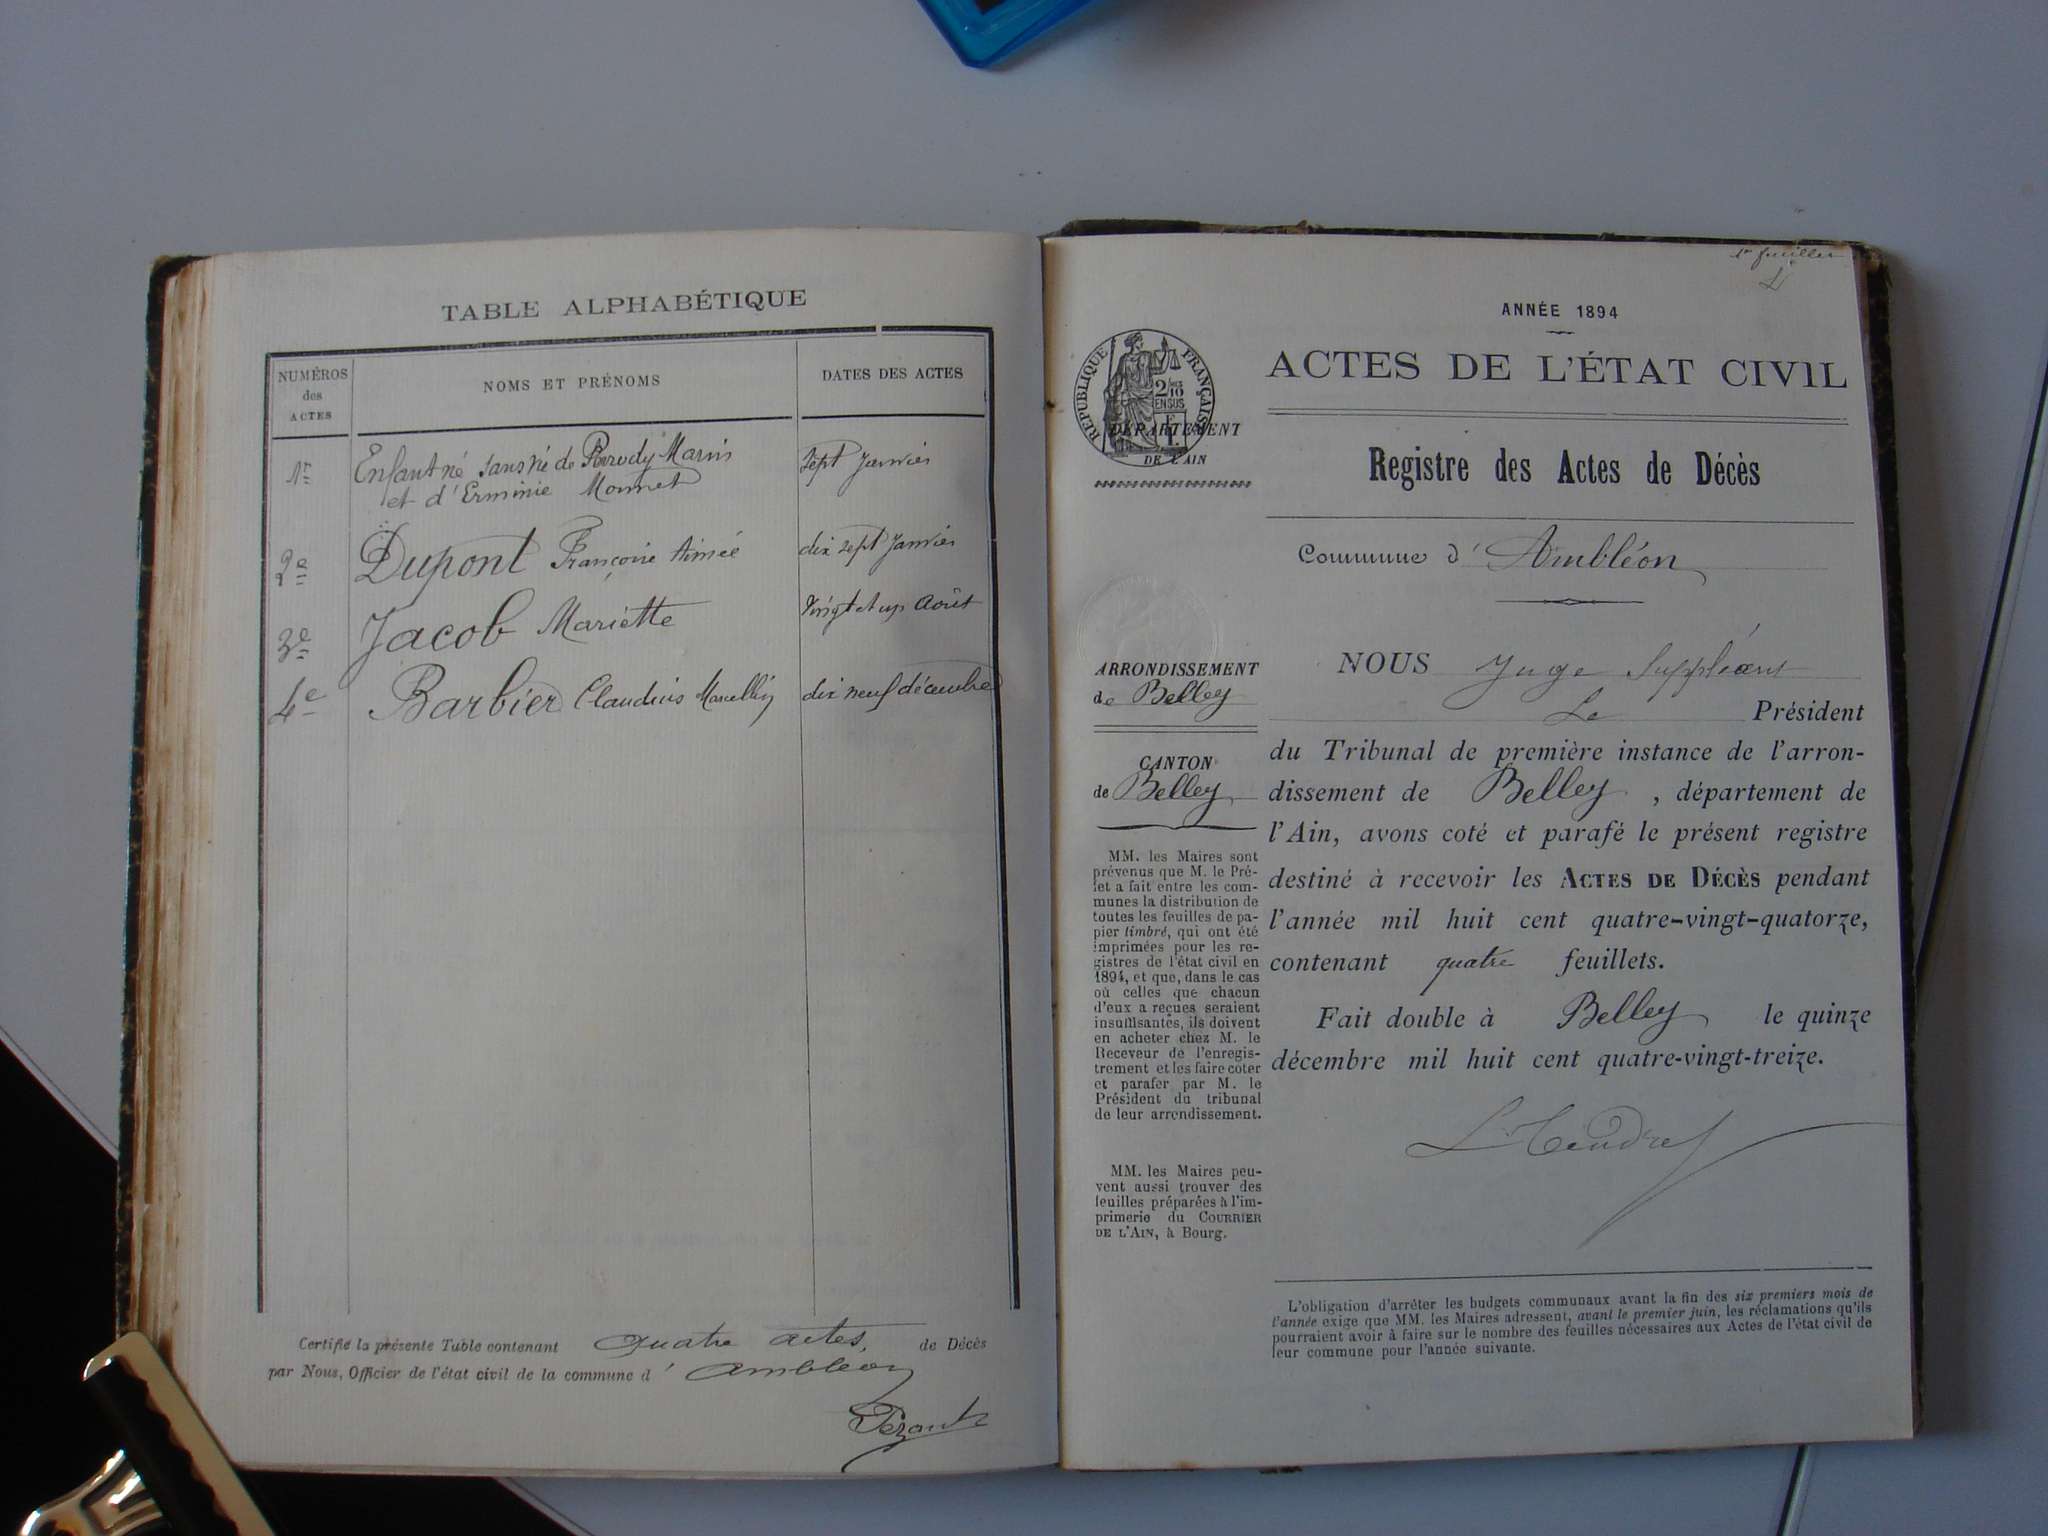 TABLE ALPHABÉTIQUE
NUMÉROS
des
ACTES
NOMS ET PRÉNOMS
DATES DES ACTES
1er Enfant né sans vie de Parody Marius sept Janvier
et d'Erminie Monnet
2e Dupont Françoise Aimée dix sept Janvier
3e Jacob Mariette Vingt et un Août
4e Barbier Claudius Marcellin dix neuf décembre
Certifié la présente Table contenant quatre actes, de Décès
par Nous, Officier de l'état civil de la commune d' Ambléon
1er feuillet
ANNÉE 1894
ACTES DE L'ÉTAT CIVIL
RÉPUBLIQUE FRANÇAISE
DÉPARTEMENT
DE L'AIN
Registre des Actes de Décès
Commune d' Ambléon
ARRONDISSEMENT
de Belley
CANTON
de Belley
MM. les Maires sont
prévenus que M. le Pré-
fet a fait entre les com-
munes la distribution de
toutes les feuilles de pa-
pier timbré, qui ont été
imprimées pour les re-
gistres de l'état civil en
1894, et que, dans le cas
où celles que chacun
d'eux a reçues seraient
insuffisantes, ils doivent
en acheter chez M. le
Receveur de l'enregis-
trement et les faire coter
et parafer par M. le
Président du tribunal
de leur arrondissement.
MM. les Maires peu-
vent aussi trouver des
feuilles préparées à l'im-
primerie du COURRIER
DE L'AIN, à Bourg.
NOUS Juge Suppléant
Le Président
du Tribunal de première instance de l'arron-
dissement de Belley, département de
l'Ain, avons coté et parafé le présent registre
destiné à recevoir les ACTES DE DÉCÈS pendant
l'année mil huit cent quatre-vingt-quatorze,
contenant quatre feuillets.
Fait double à Belley le quinze
décembre mil huit cent quatre-vingt-treize.
L'obligation d'arrêter les budgets communaux avant la fin des six premiers mois de
l'année exige que MM. les Maires adressent, avant le premier juin, les réclamations qu'ils
pourraient avoir à faire sur le nombre des feuilles nécessaires aux Actes de l'état civil de
leur commune pour l'année suivante.